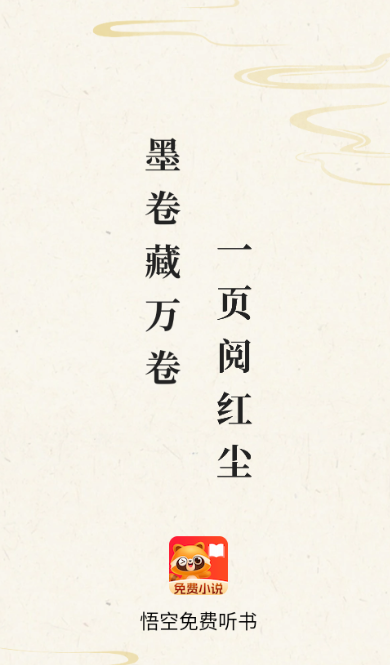 墨卷藏万卷
一页阅红尘
免费小说
悟空免费听书